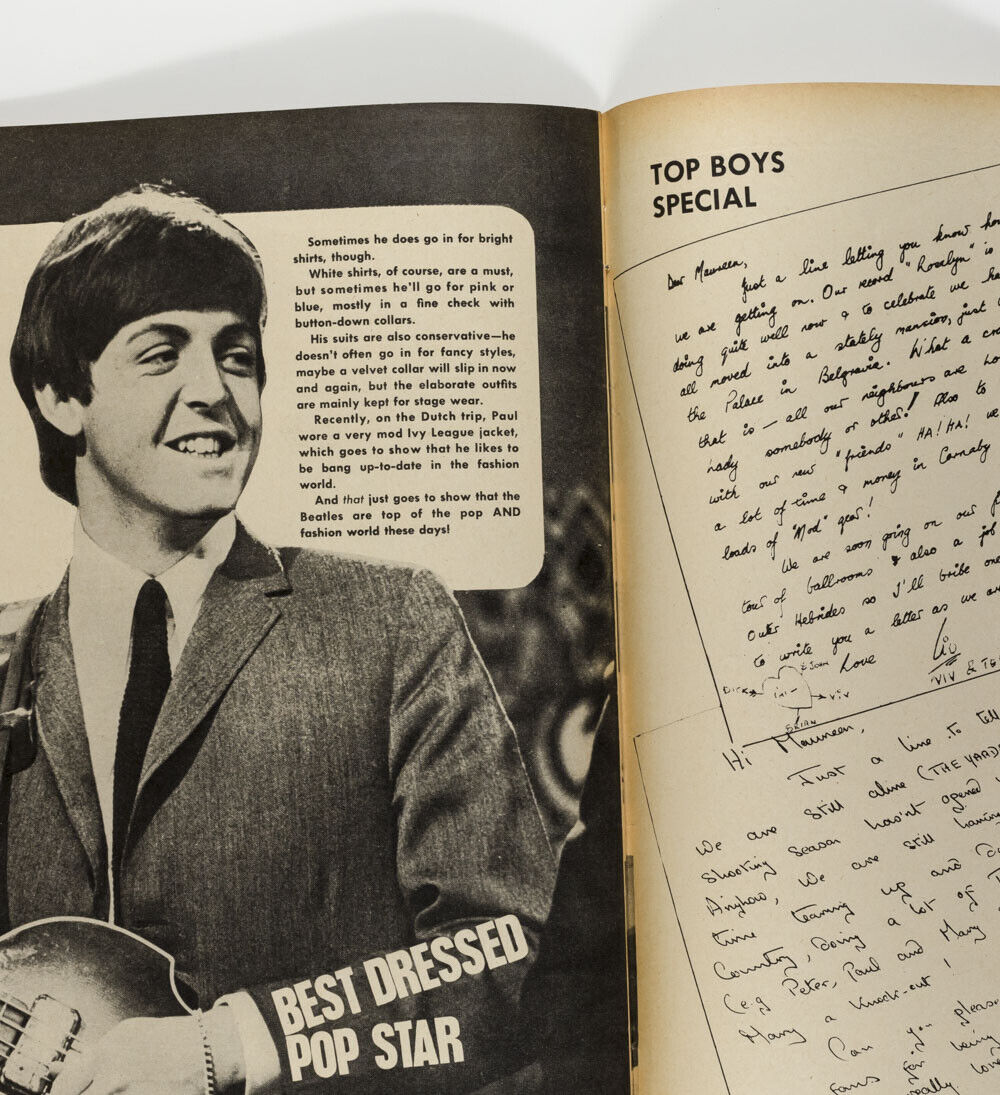 Sometimes he does go in for bright
shirts, though.
White shirts, of course, are a must,
but sometimes he'll go for pink or
blue, mostly in a fine check with
button-down collars.
His suits are also conservative—he
doesn't often go in for fancy styles,
maybe a velvet collar will slip in now
and again, but the elaborate outfits
are mainly kept for stage wear.
Recently, on the Dutch trip, Paul
wore a very mod Ivy League jacket,
which goes to show that he likes to
be bang up-to-date in the fashion
world.
And that just goes to show that the
Beatles are top of the pop AND
fashion world these days!
BEST DRESSED
POP STAR
TOP BOYS
SPECIAL
Dear Maureen,
Just a line letting you know
we are getting on. Our record "Rosalyn" is
doing quite well now & to celebrate we
all moved into a stately mansion, just
the Palace in Belgravia. What a
that is — all our neighbours are
Lady somebody or other! Also to
with our new "friends" HA! HA! we
a lot of time & money in Carnaby
loads of "Mod" gear!
We are soon going on our
tour of ballrooms & also a job
Outer Hebrides so I'll bribe one
to write you a letter as we are
Love
Viv
VIV &
& JOHN
DICK
VIV
BRIAN
Hi Maureen,
Just a line to tell
we are still alive (THE
Shooting Season hasn't opened
Anyhow, we are still having
time teaming up and
Country, doing a lot of
(e.g Peter, Paul and Mary
Mary a Knock-out!
Can you please
fans for being
really